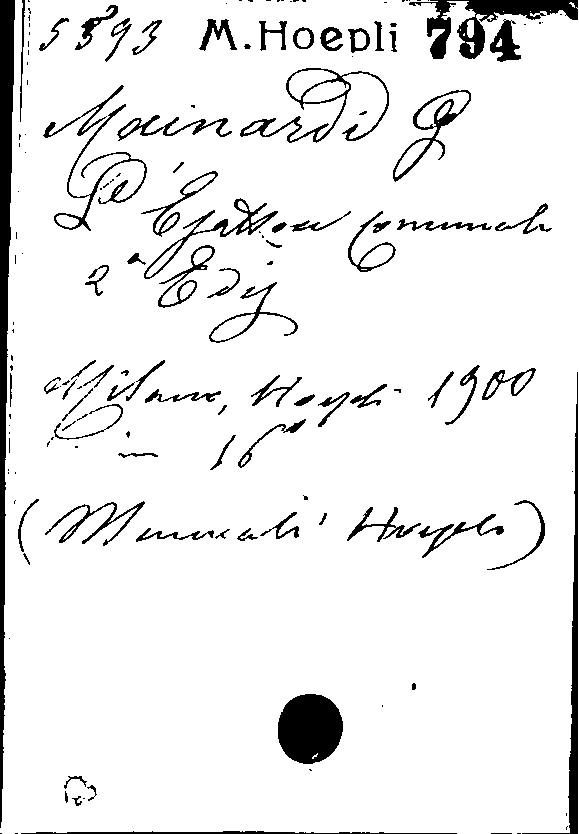 5593 M.Hoepli 794
Mainardi G
L'Esattore comunale
2ª Ediz
Milano, Hoepli 1900
in 16°
(Manuali Hoepli)